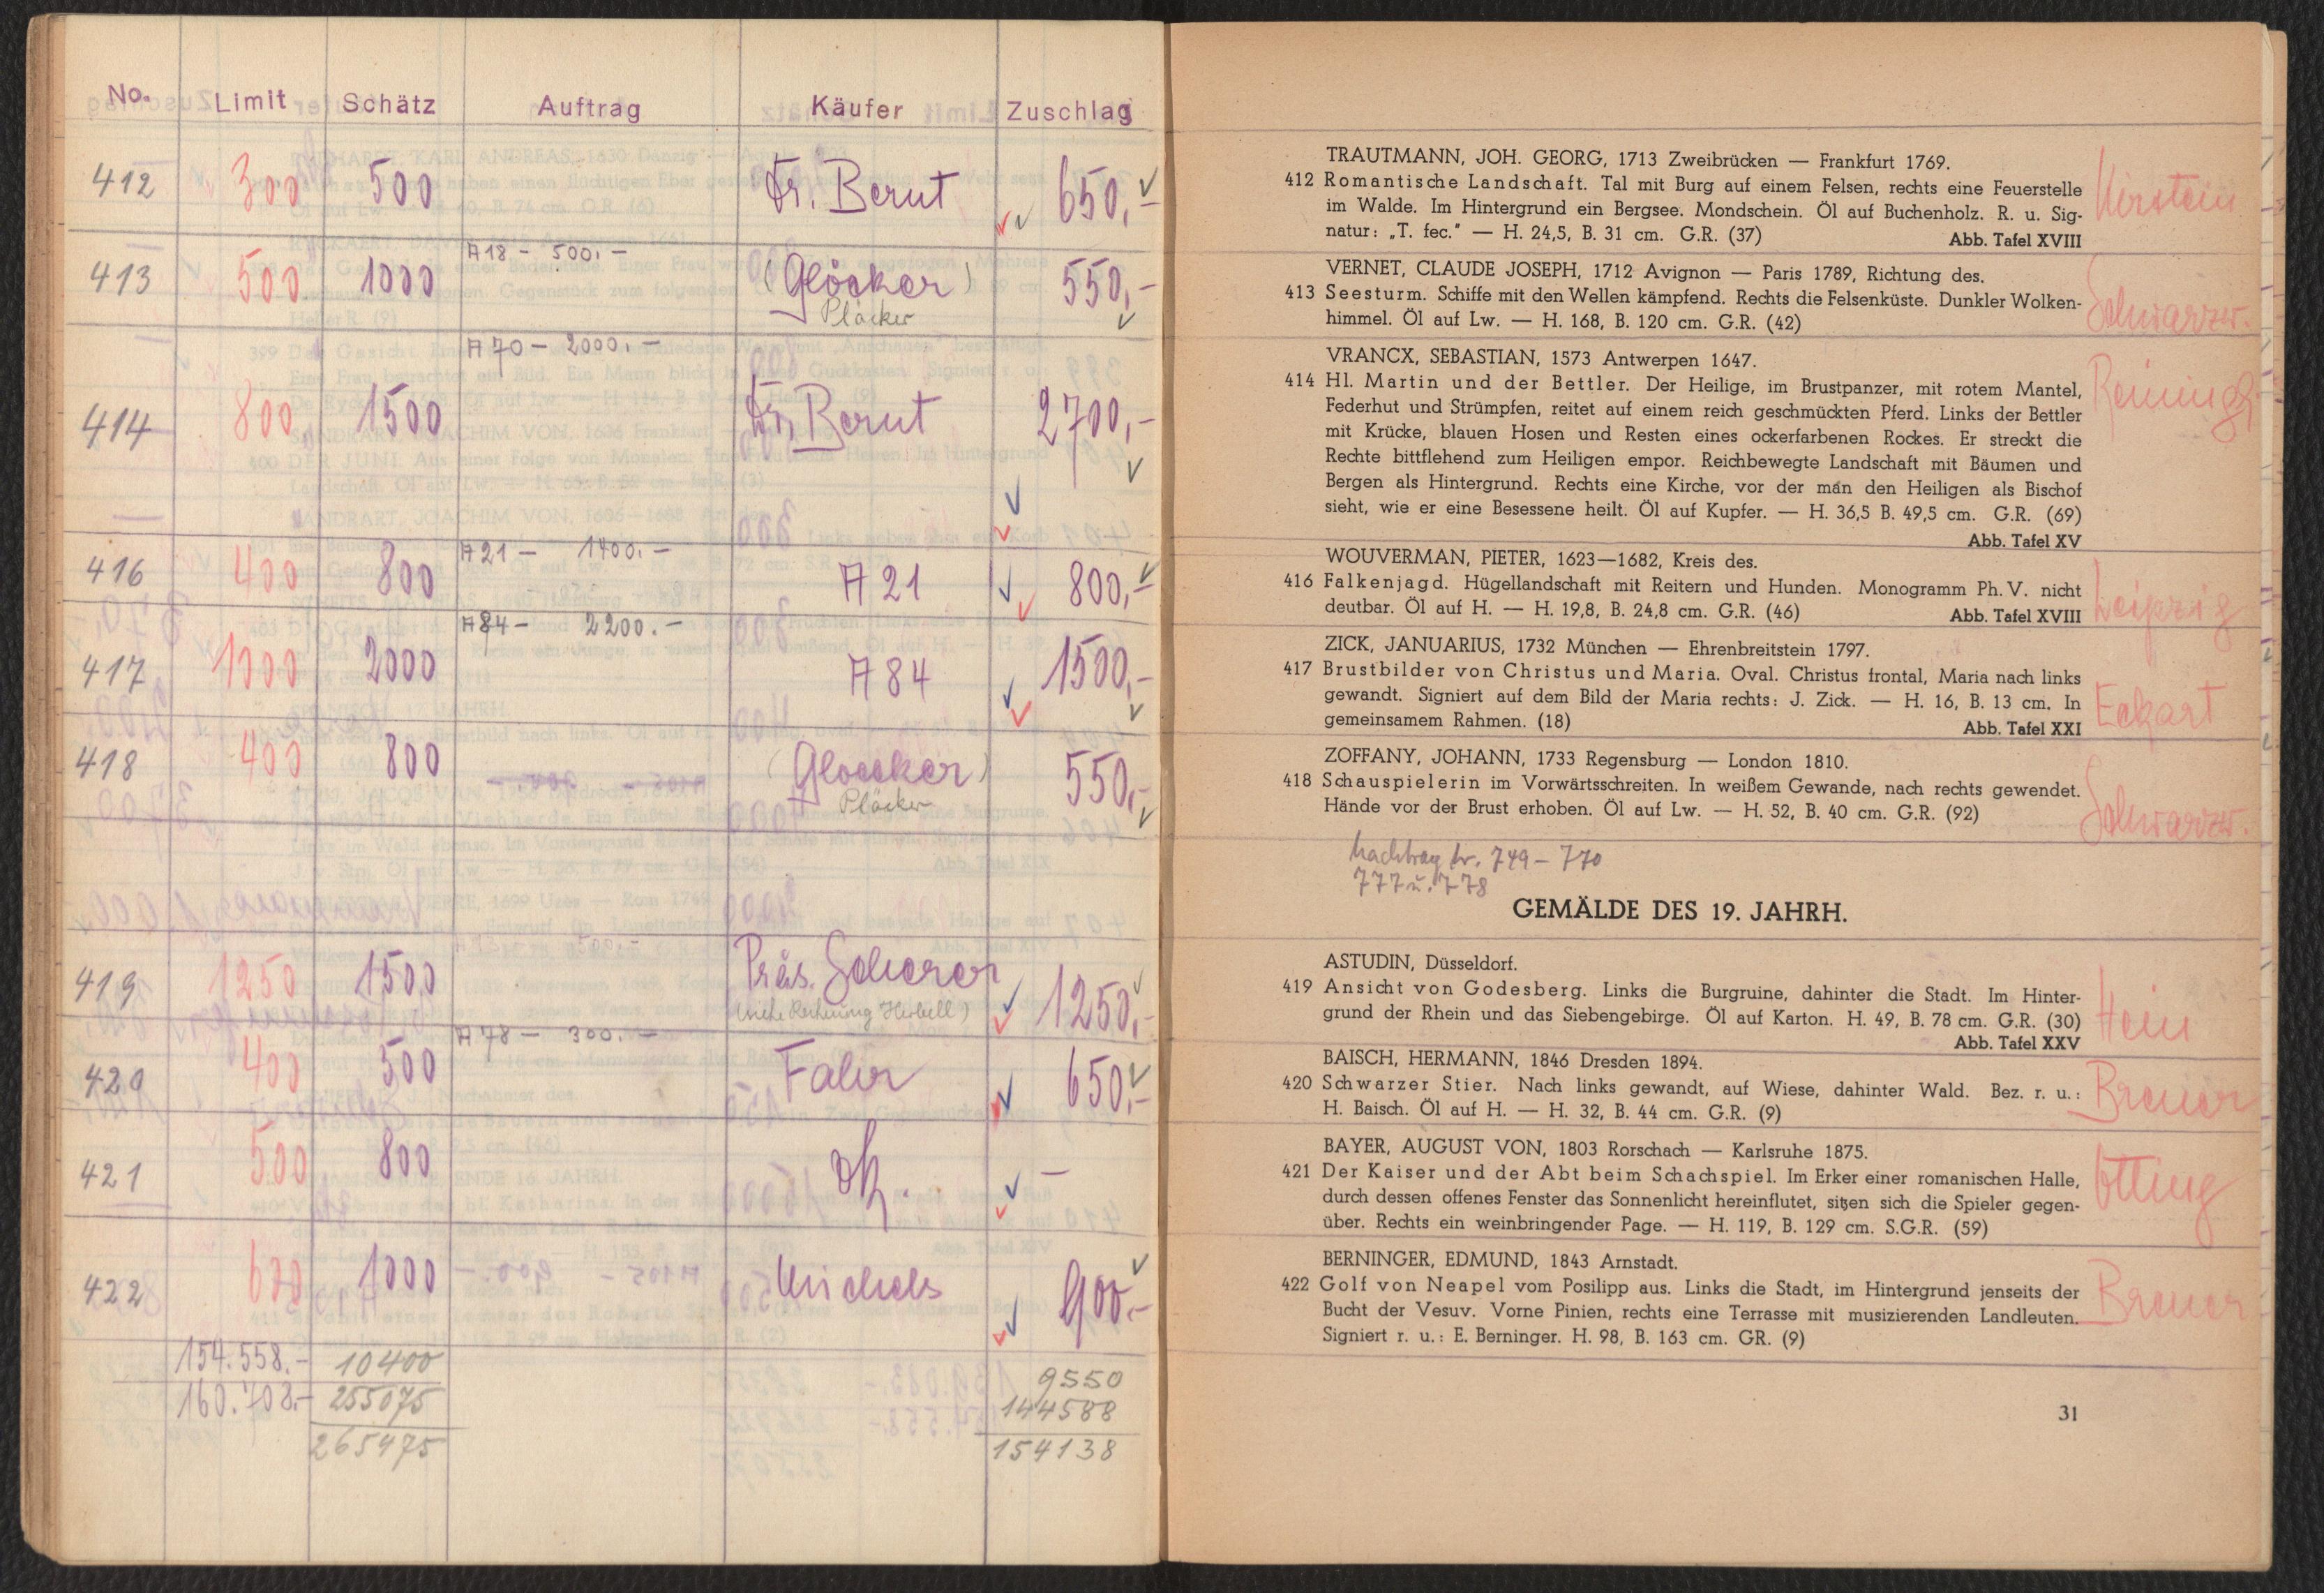 No. Limit Schätz Auftrag Käufer Zuschlag
412 300 500 Dr. Berut 650,-
A 18 - 500.-
413 500 1000 (Glöcker) 550,-
Plöcker
A 70 - 2000.-
414 800 1500 Dr. Berut 2700,-
A 21 - 1400.-
416 400 800 A 21 800,-
A 84 - 2200.-
417 1000 2000 A 84 1500,-
418 400 800 (Gloecker) 550,-
Plöcker
419 1250 1500 Präs. Scherer 1250,-
(siehe Rechnung
A 78 - 300.-
420 400 500 Fahr 650,-
421 500 800 -
422 600 1000 900.-
154.558.- 10400 9550
160.708.- 255075 144588
265475 154138
TRAUTMANN, JOH. GEORG, 1713 Zweibrücken — Frankfurt 1769.
412 Romantische Landschaft. Tal mit Burg auf einem Felsen, rechts eine Feuerstelle Kirstein
im Walde. Im Hintergrund ein Bergsee. Mondschein. Öl auf Buchenholz. R. u. Sig-
natur: „T. fec.“ — H. 24,5, B. 31 cm. G.R. (37) Abb. Tafel XVIII
VERNET, CLAUDE JOSEPH, 1712 Avignon — Paris 1789, Richtung des.
413 Seesturm. Schiffe mit den Wellen kämpfend. Rechts die Felsenküste. Dunkler Wolken- Schwarzw.
himmel. Öl auf Lw. — H. 168, B. 120 cm. G.R. (42)
VRANCX, SEBASTIAN, 1573 Antwerpen 1647.
414 Hl. Martin und der Bettler. Der Heilige, im Brustpanzer, mit rotem Mantel,
Federhut und Strümpfen, reitet auf einem reich geschmückten Pferd. Links der Bettler
mit Krücke, blauen Hosen und Resten eines ockerfarbenen Rockes. Er streckt die
Rechte bittflehend zum Heiligen empor. Reichbewegte Landschaft mit Bäumen und
Bergen als Hintergrund. Rechts eine Kirche, vor der man den Heiligen als Bischof
sieht, wie er eine Besessene heilt. Öl auf Kupfer. — H. 36,5 B. 49,5 cm. G.R. (69)
Abb. Tafel XV
WOUVERMAN, PIETER, 1623—1682, Kreis des.
416 Falkenjagd. Hügellandschaft mit Reitern und Hunden. Monogramm Ph. V. nicht Leipzig
deutbar. Öl auf H. — H. 19,8, B. 24,8 cm. G.R. (46) Abb. Tafel XVIII
ZICK, JANUARIUS, 1732 München — Ehrenbreitstein 1797.
417 Brustbilder von Christus und Maria. Oval. Christus frontal, Maria nach links
gewandt. Signiert auf dem Bild der Maria rechts: J. Zick. — H. 16, B. 13 cm. In Eckart
gemeinsamem Rahmen. (18) Abb. Tafel XXI
ZOFFANY, JOHANN, 1733 Regensburg — London 1810.
418 Schauspielerin im Vorwärtsschreiten. In weißem Gewande, nach rechts gewendet.
Hände vor der Brust erhoben. Öl auf Lw. — H. 52, B. 40 cm. G.R. (92) Schwarzw.
Nachtrag Nr. 749 - 770
777 u. 778
GEMÄLDE DES 19. JAHRH.
ASTUDIN, Düsseldorf.
419 Ansicht von Godesberg. Links die Burgruine, dahinter die Stadt. Im Hinter-
grund der Rhein und das Siebengebirge. Öl auf Karton. H. 49, B. 78 cm. G.R. (30) Hein
Abb. Tafel XXV
BAISCH, HERMANN, 1846 Dresden 1894.
420 Schwarzer Stier. Nach links gewandt, auf Wiese, dahinter Wald. Bez. r. u.: Breuer
H. Baisch. Öl auf H. — H. 32, B. 44 cm. G.R. (9)
BAYER, AUGUST VON, 1803 Rorschach — Karlsruhe 1875.
421 Der Kaiser und der Abt beim Schachspiel. Im Erker einer romanischen Halle, Otting
durch dessen offenes Fenster das Sonnenlicht hereinflutet, sitzen sich die Spieler gegen-
über. Rechts ein weinbringender Page. — H. 119, B. 129 cm. S.G.R. (59)
BERNINGER, EDMUND, 1843 Arnstadt.
422 Golf von Neapel vom Posilipp aus. Links die Stadt, im Hintergrund jenseits der Breuer
Bucht der Vesuv. Vorne Pinien, rechts eine Terrasse mit musizierenden Landleuten.
Signiert r. u.: E. Berninger. H. 98, B. 163 cm. GR. (9)
31